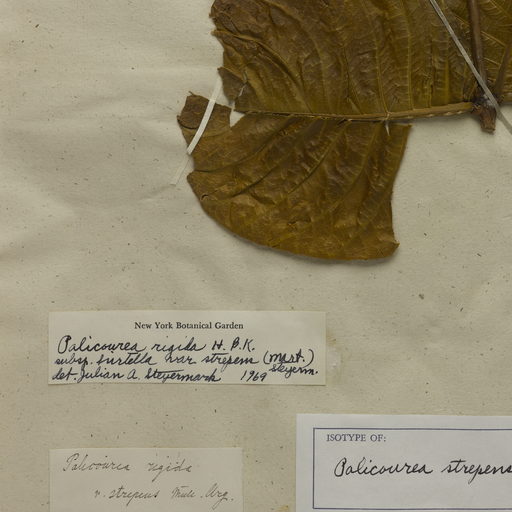 New York Botanical Garden
Palicourea rigida H.B.K.
subsp. hirtella var strepens (Mart.) Steyerm.
det. Julian A. Steyermark 1969
Palicourea rigida
v. strepens Muell. Arg.
ISOTYPE OF:
Palicourea strepens